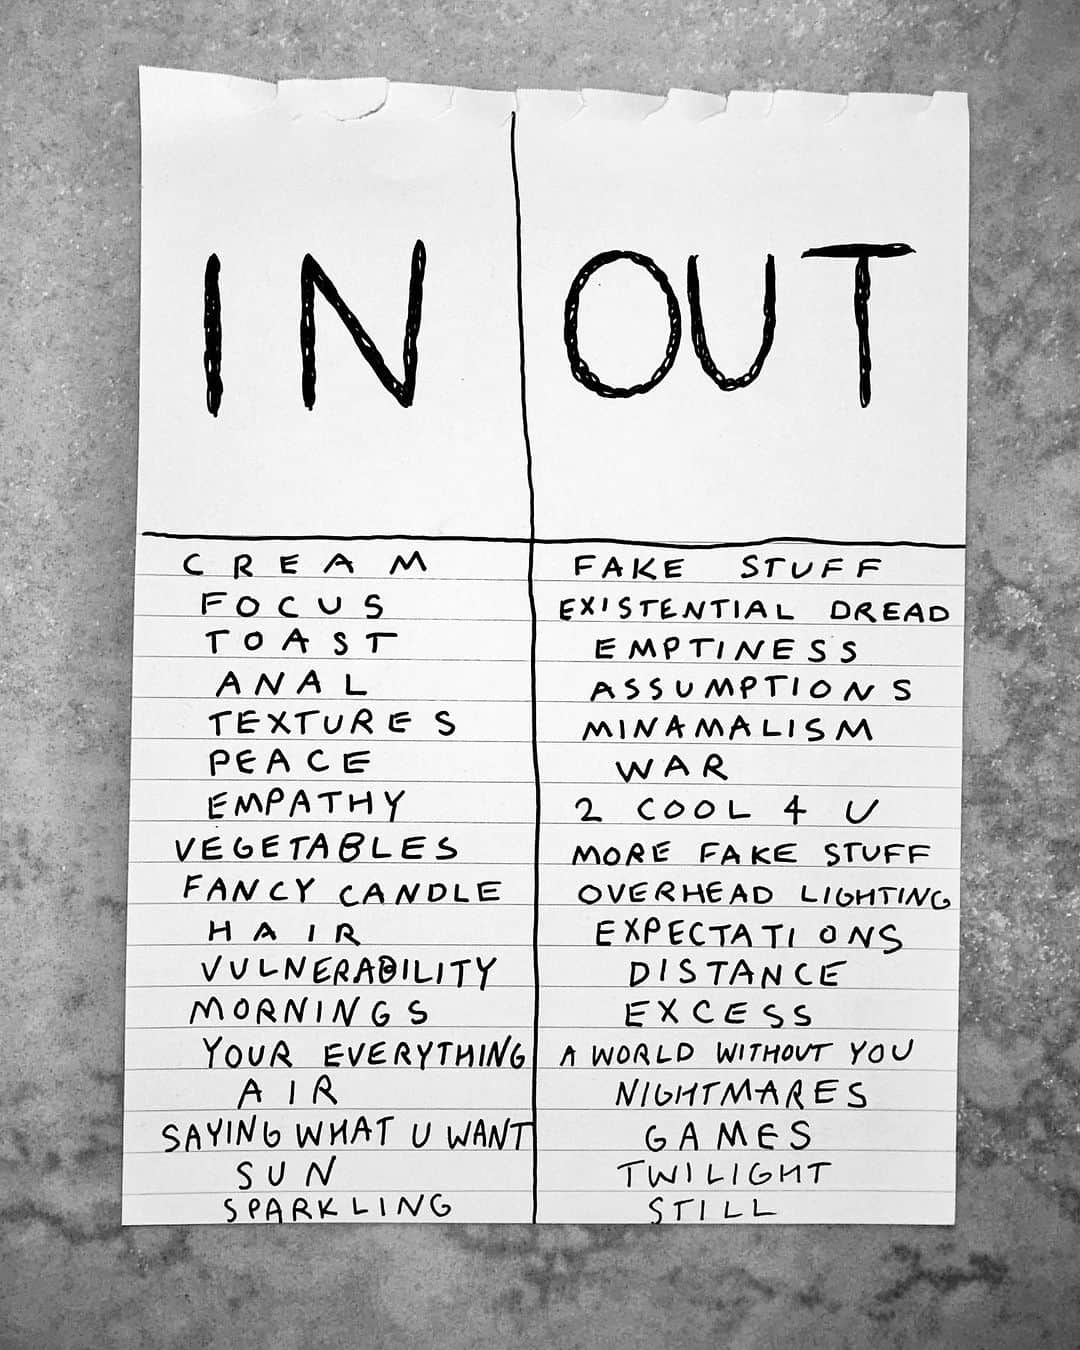 IN
CREAM
FOCUS
TOAST
ANAL
TEXTURES
PEACE
EMPATHY
VEGETABLES
FANCY CANDLE
HAIR
VULNERABILITY
MORNINGS
YOUR EVERYTHING
AIR
SAYING WHAT U WANT
SUN
SPARKLING
OUT
FAKE STUFF
EXISTENTIAL DREAD
EMPTINESS
ASSUMPTIONS
MINAMALISM
WAR
2 COOL 4 U
MORE FAKE STUFF
OVERHEAD LIGHTING
EXPECTATIONS
DISTANCE
EXCESS
A WORLD WITHOUT YOU
NIGHTMARES
GAMES
TWILIGHT
STILL